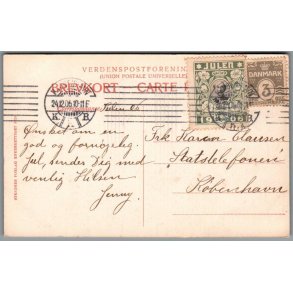 VERDENSPOSTFORENINGEN
(UNION POSTALE UNIVERSELLE)
BREVKORT - CARTE
JULEN
1905
DANMARK
3
24.12.05.10-11F
K B
Julen 05
Ønsket om en
god og fornøjelig
Jul, sender Dig med
venlig Hilsen
Jenny.
Frk Karen Clausen
Statstelefonen
København